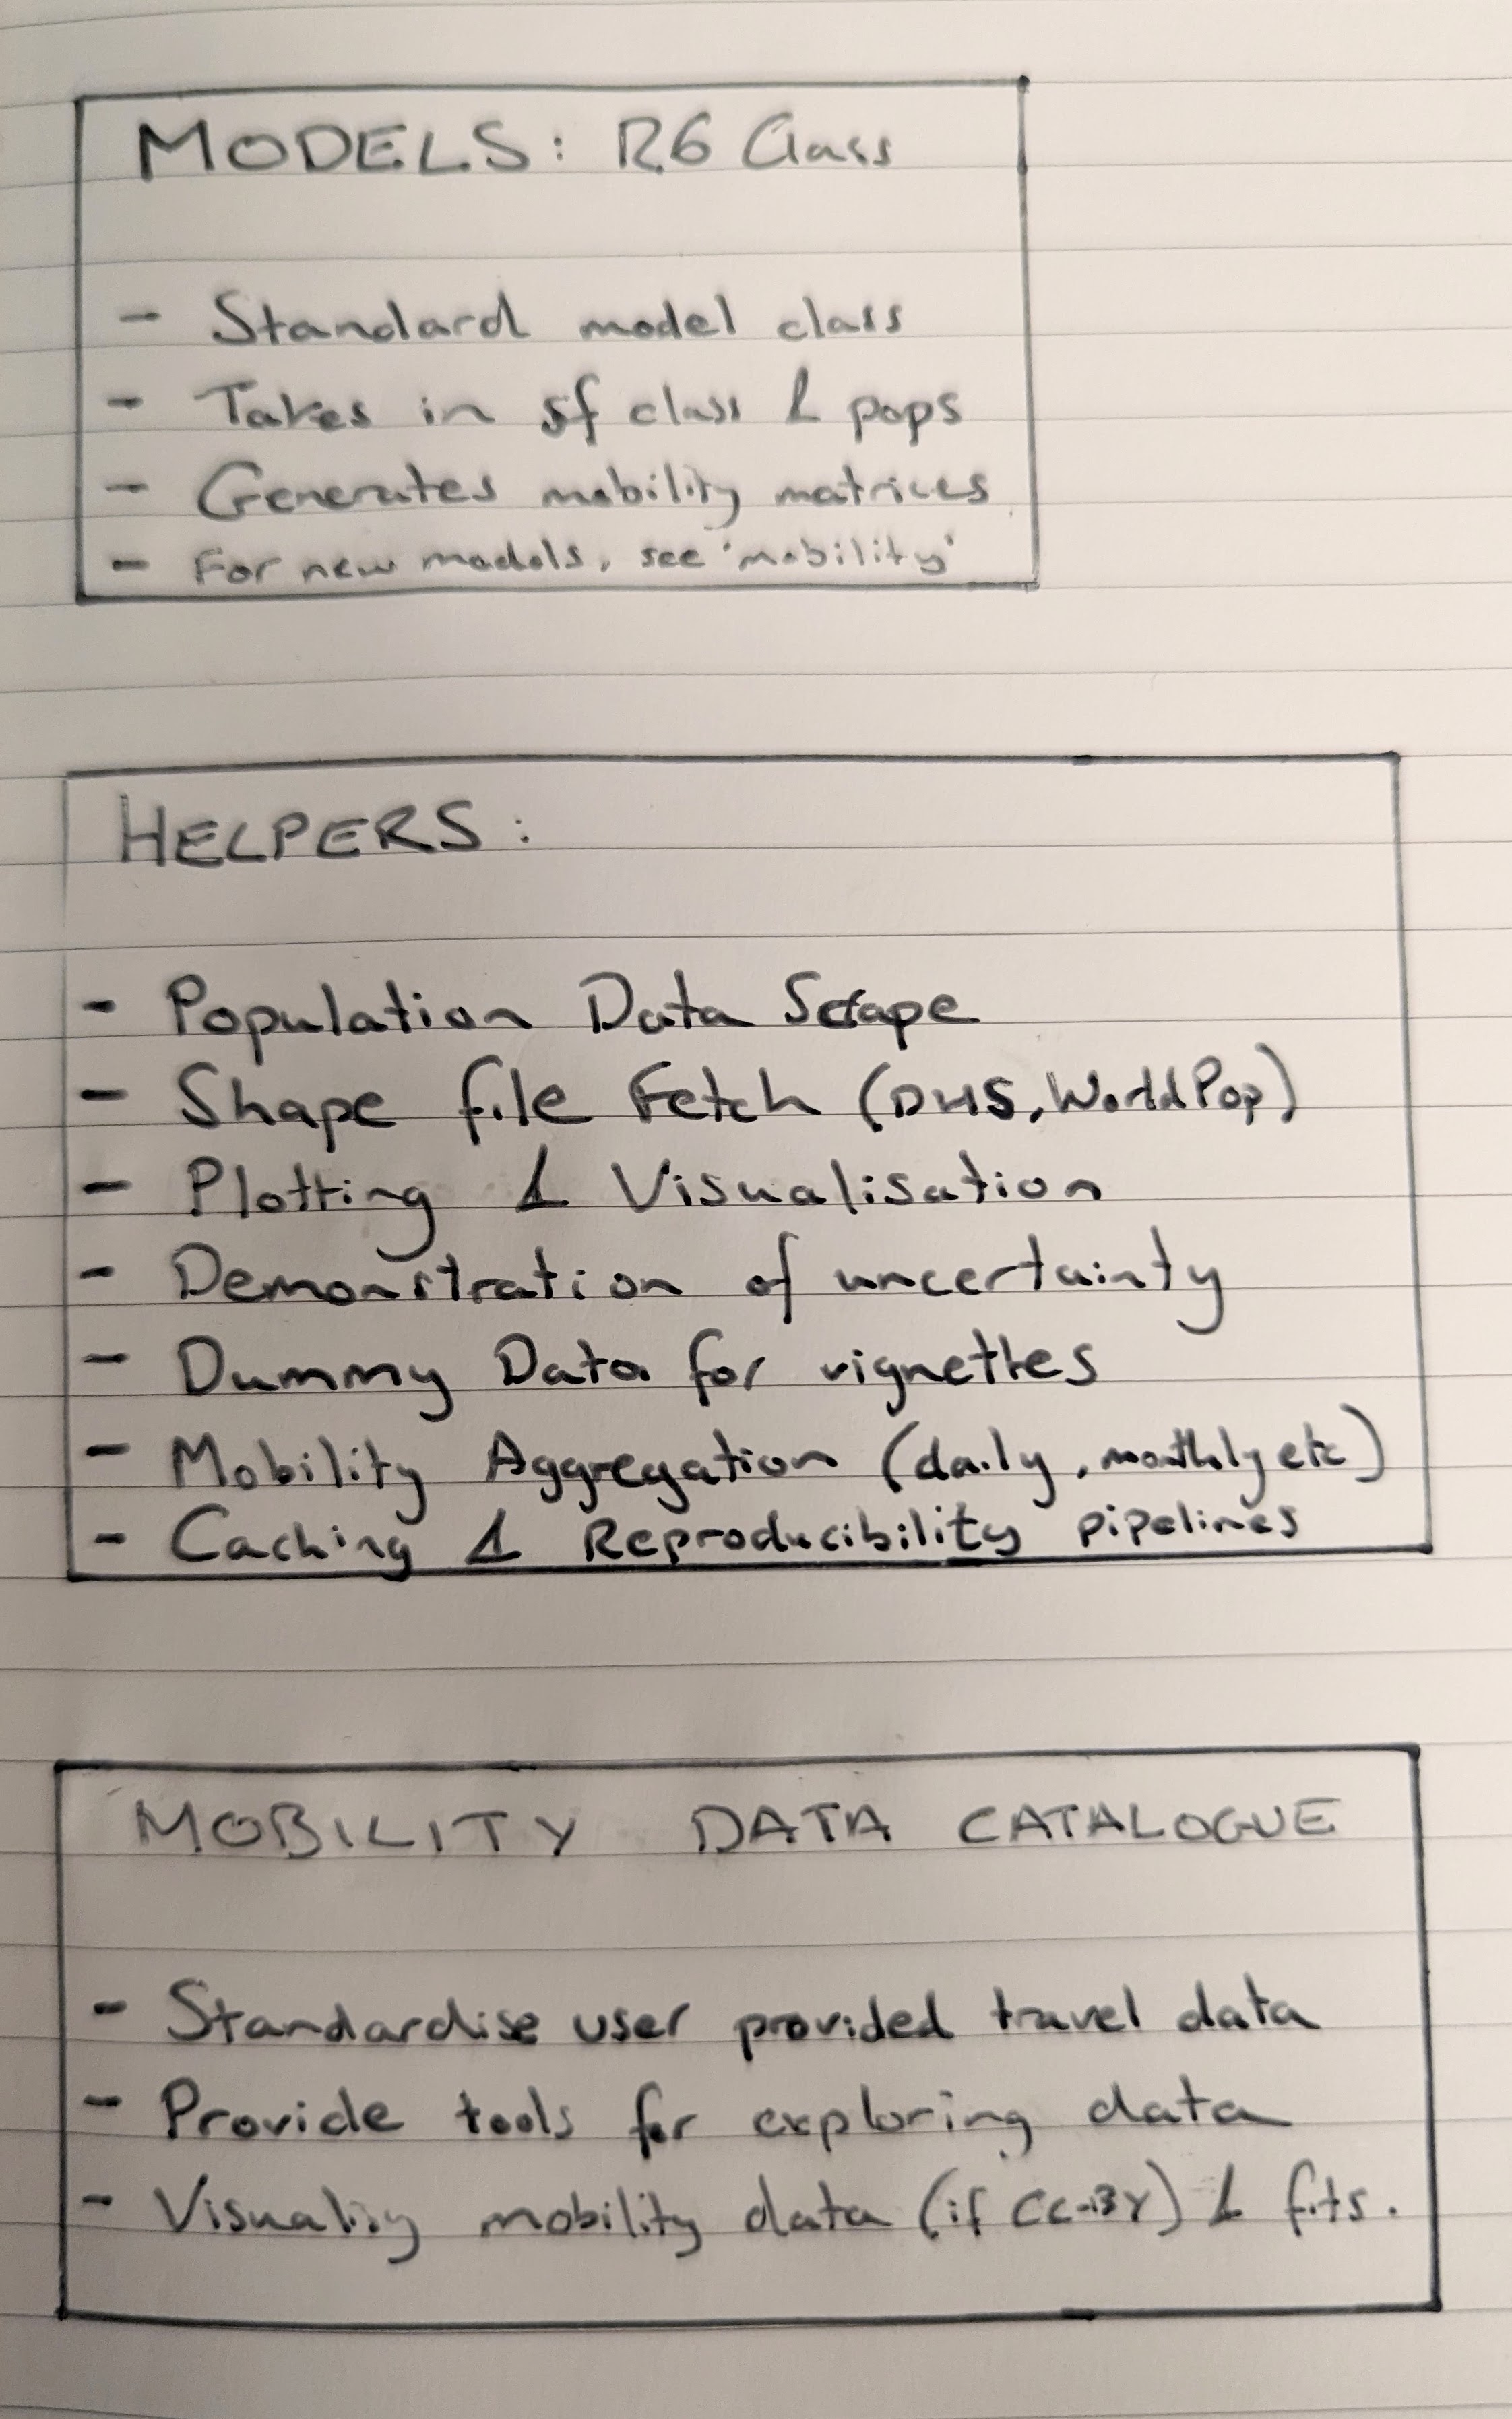 MODELS: R6 Class
- Standard model class
- Takes in sf class & pops
- Generates mobility matrices
- For new models, see 'mobility'
HELPERS:
- Population Data Scrape
- Shape file Fetch (DHS, WorldPop)
- Plotting & Visualisation
- Demonstration of uncertainty
- Dummy Data for vignettes
- Mobility Aggregation (daily, monthly etc)
- Caching & Reproducibility pipelines
MOBILITY DATA CATALOGUE
- Standardise user provided travel data
- Provide tools for exploring data
- Visualisy mobility data (if CC-BY) & fits.